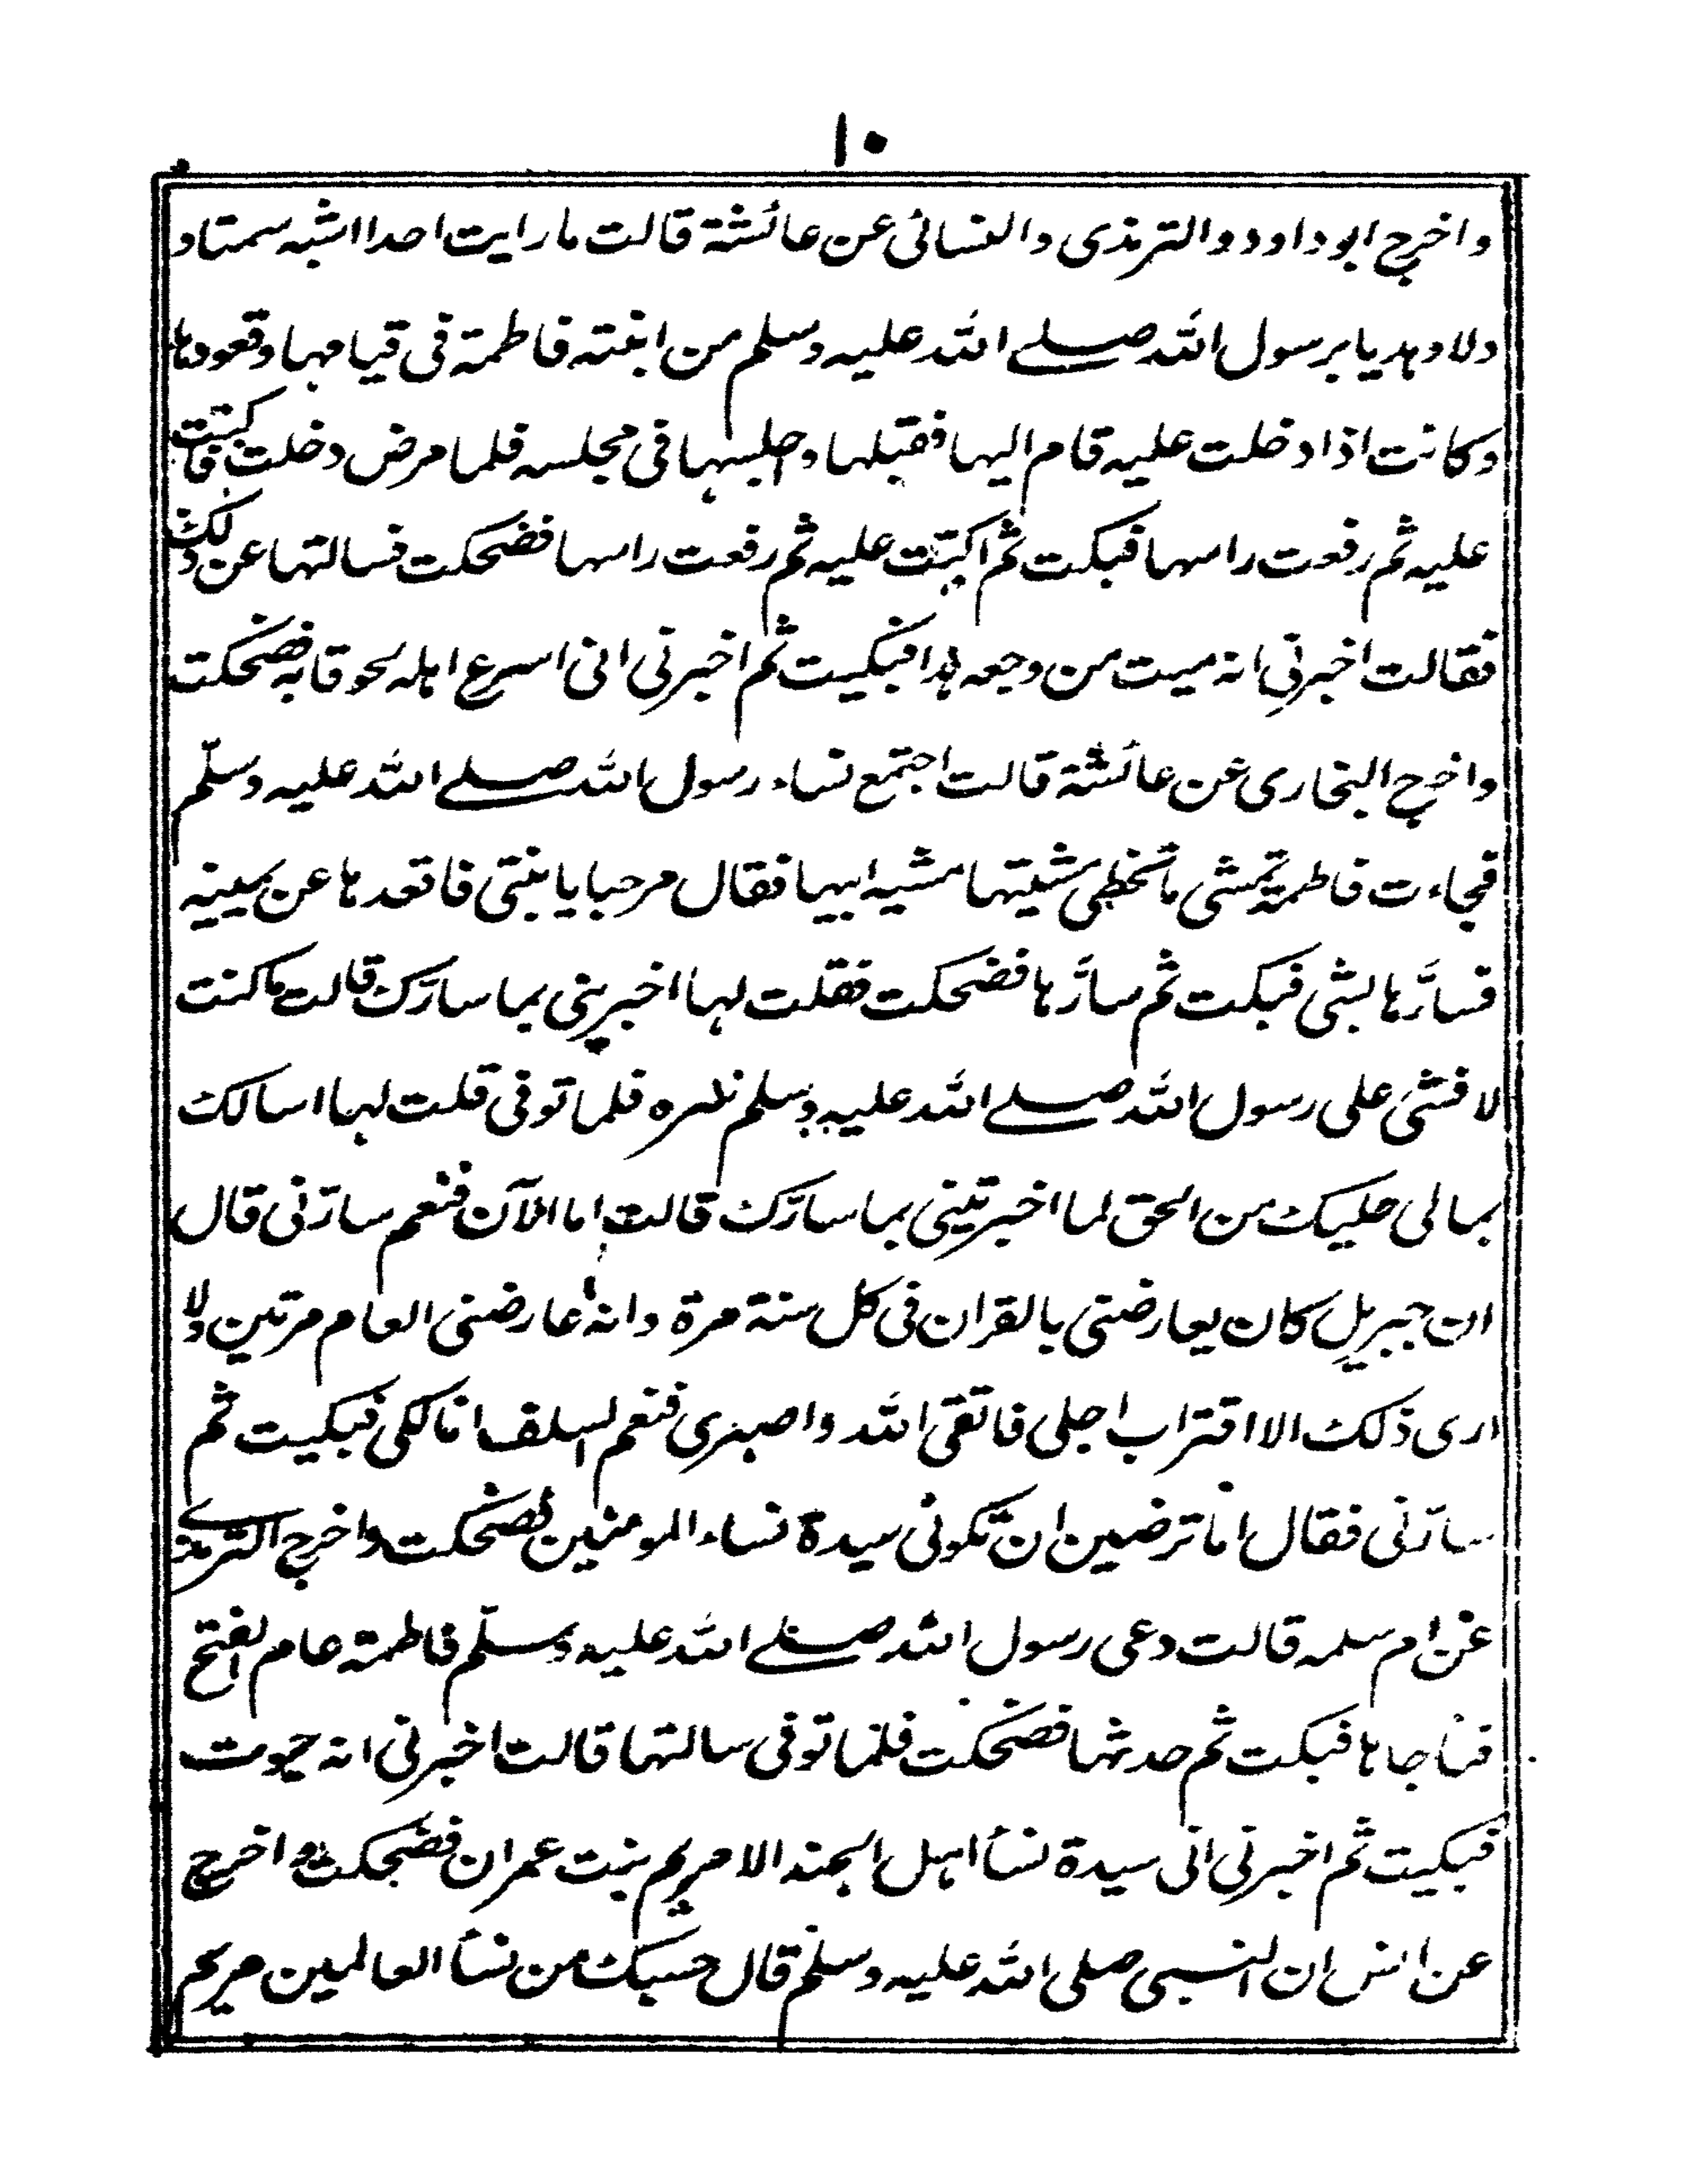 ١٠
واخرج ابو داود والترمذى والنسائى عن عائشة قالت ما رايت احدا اشبه سمتا و
دلا وهديا برسول الله صلے الله عليه وسلم من ابنته فاطمة فى قيامها وقعودها
وكانت اذا دخلت عليه قام اليها فقبلها واجلسها فى مجلسه فلما مرض دخلت فاكبّت
عليه ثم رفعت راسها فبكت ثم اكبّت عليه ثم رفعت راسها فضحكت فسالتها عن ذلك
فقالت اخبرنى انه ميت من وجعه هذا فبكيت ثم اخبرنى انى اسرع اهله لحوقا به فضحكت
واخرج البخارى عن عائشة قالت اجتمع نساء رسول الله صلے الله عليه وسلّم
فجاءت فاطمة تمشى ما تخطى مشيتها مشيه ابيها فقال مرحبا يا بنتى فاقعدها عن يمينه
فسارَّها بشى فبكت ثم سارَّها فضحكت فقلت لها اخبرينى بما سارّك قالت ما كنت
لافشى على رسول الله صلے الله عليه وسلم سره فلما توفى قلت لها اسالك
بما لى عليك من الحق لما اخبرتينى بما سارّك قالت اما الآن فنعم سارّنى قال
ان جبريل كان يعارضنى بالقران فى كل سنة مرة وانه عارضنى العام مرتين ولا
ارى ذلك الا اقتراب اجلى فاتقى الله واصبرى فنعم السلف انا لكى فبكيت ثم
سارّنى فقال اما ترضين ان تكونى سيدة نساء المومنين فضحكت واخرج الترمذے
عن ام سلمه قالت دعى رسول الله صلے الله عليه وسلّم فاطمة عام الفتح
فناجاها فبكت ثم حدثها فضحكت فلما توفى سالتها قالت اخبرنى انه يموت
فبكيت ثم اخبرنى انى سيدة نسأ اهل الجنه الا مريم بنت عمران فضحكت واخرج
عن انس ان النبى صلى الله عليه وسلم قال حسبك من نسأ العالمين مريم